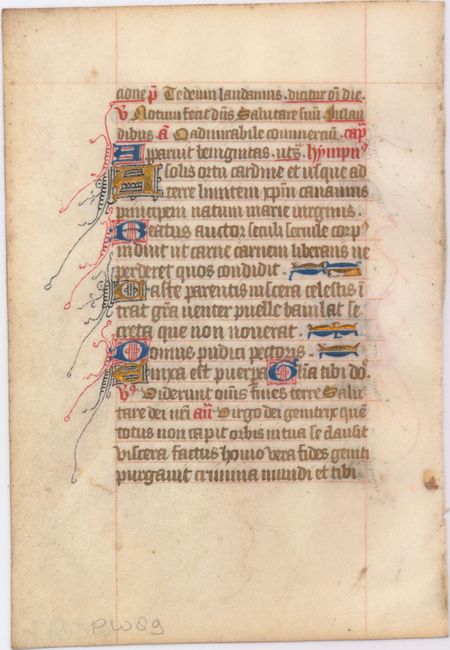 cione p̄ Te deum laudamus . dicitur oī die .
v̄ Notum fecit dn̄s Salutare suū Jn lau
dibus . a᷈ O admirabile commerciū . cap̄
Apparuit benignitas . ut s̄ . hȳmpn⁹
A solis ortu cardine et usque ad
terre limitem xp̄m canamus
principem natum marie virginis .
Beatus auctor seculi servile corp⁹
induit ut carne carnem liberans ne
perderet quos condidit .
Caste parentis viscera celestis ī
trat gr̄a venter puelle baiulat se
creta que non noverat .
Domus pudici pectoris .
Enixa est puerpa Gl̄ia tibi do .
v̄ Viderunt om̄s fines terre Salu
tare dei nr̄i an̄ Virgo dei genitrix quē
totus non capit orbis in tua se clausit
viscera factus homo vera fides geniti
purgavit crimina mundi et tibi
PW89